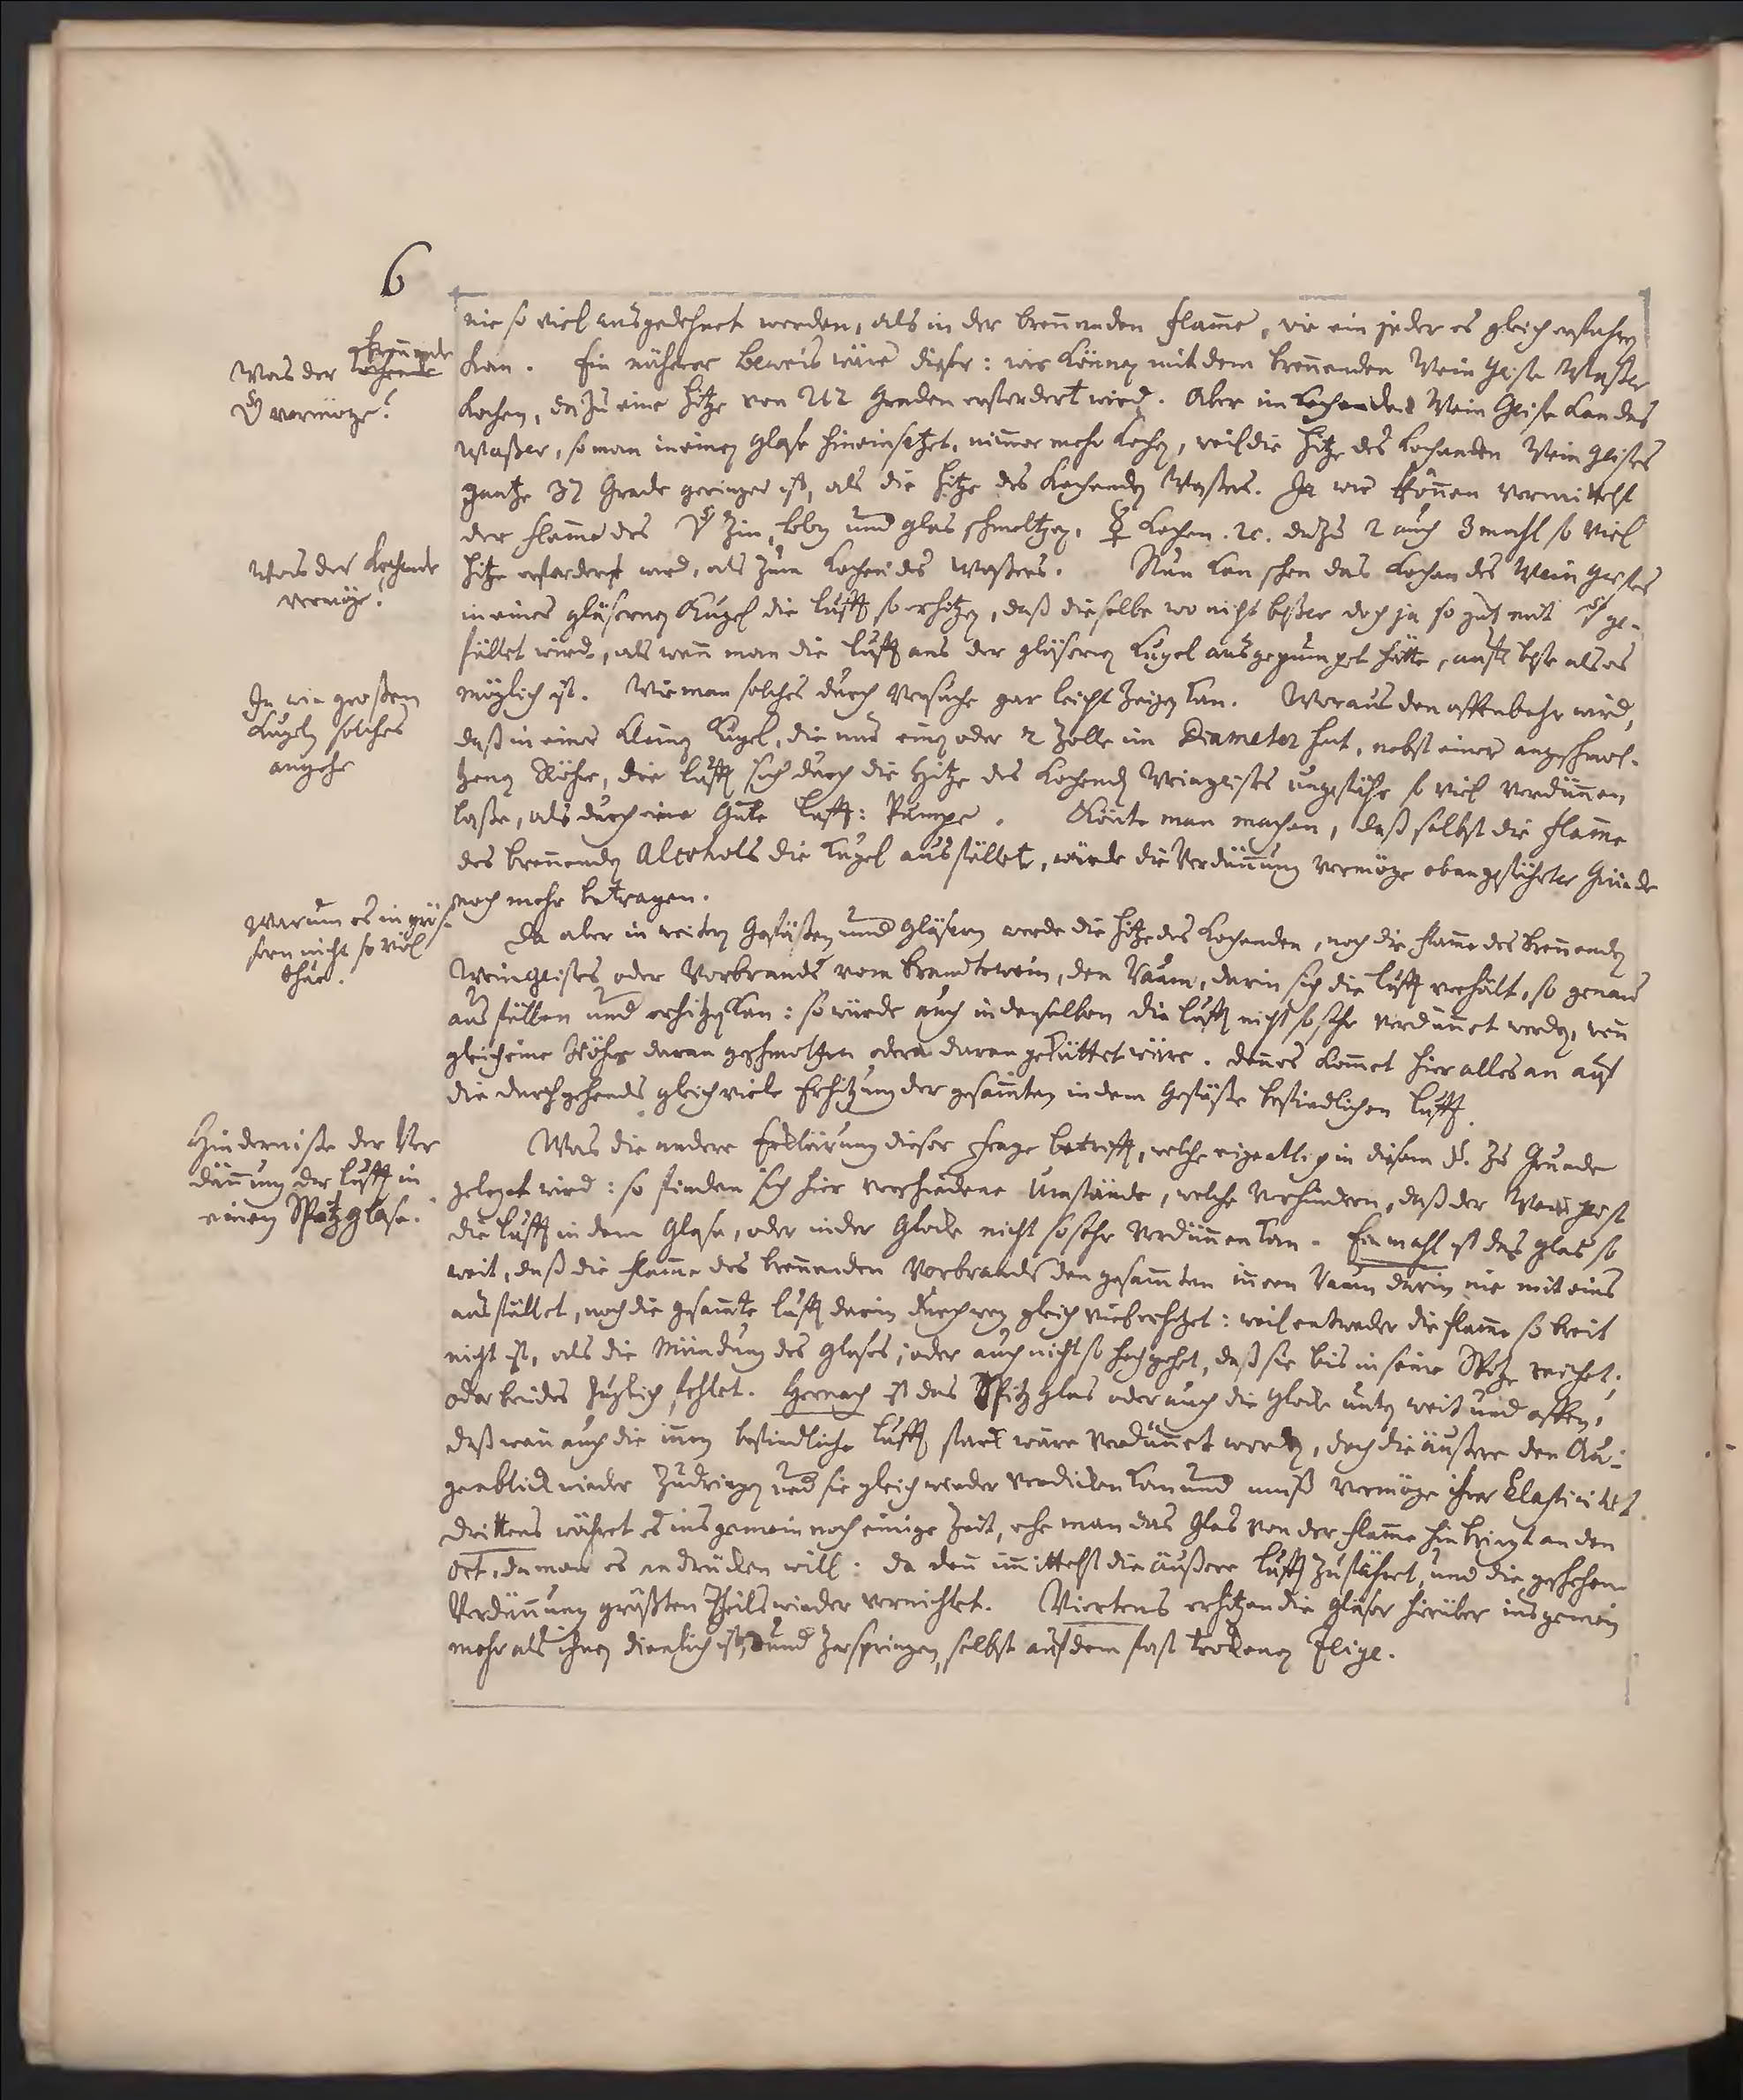 6
nie so viel ausgedehnet werden, als in der breñenden Flam̃e, wie ein jeder es gleich erfahren
kan. Ein näherer Beweis wäre dieser: wir können mit dem breñenden Wein Geiste Waßer
kochen, dazu eine Hitze von 212 Graden erfordert wird. Aber im kochenden Wein Geiste kan das
Waßer, so man in einen Glase hineinsetzet, nim̃er mehr kochen, weil die Hitze des kochenden Wein Geistes
gantze 37 Grade geringer ist, als die Hitze des kochenden Waßers. Ja wir köñen vermittelst
der Flam̃e des Zin, Bley und Glas schmeltzen, ☿ kochen. ꝛc. dazu 2 auch 3 mahl so viel
Hitze erfordert wird, als zum Kochen des Waßers. Nun kan schon das Kochen des Wein Geistes
in einer gläsernen Kugel die Lufft so erhitzen, daß dieselbe wo nicht beßer doch ja so gut mit ge-
füllet wird, als wañ man die Lufft aus der gläsernen Kugel ausgepumpet hätte, aufs beste als es
möglich ist. Wie man solches durch Versuche gar leicht zeigen kan. Woraus den offenbahr wird,
daß in einer kleinen Kugel, die nur einen oder 2 Zolle im Diameter hat, nebst einer angeschmol-
tzenen Röhre, die Lufft sich durch die Hitze des kochenden Weingeistes ungefähr so viel verdüñen
laße, als durch eine gute Lufft: Pumpe. Könte man machen, daß selbst die Flam̃e
des breñenden Alcohols die Kugel ausfüllet, würde die Verdüñung vermöge obangeführter Gründe
noch mehr betragen.
Da aber in weiten Gefäßen und Gläsern weder die Hitze des kochenden, noch die Flam̃e des breñenden
Weingeistes oder Vorbrands vom Brandtewein, den Raum, darin sich die Lufft verhält, so genau
ausfüllen und erhitzen kan: so würde auch in denselben die Lufft nicht so sehr verdüñet werden, weñ
gleich eine Röhre daran geschmoltzen oder daran geküttet wäre. Deñ es kom̃et hier alles an auf
die durchgehends gleich viele Erhitzung der gesam̃ten in dem Gefäße befindlichen Lufft.
Was die andere Erklärung dieser Frage betrifft, welche eigentlich in diesem §. zu Grunde
geleget wird: so finden sich hier verschiedene Umstände, welche verhindern, daß der Weingeist
die Lufft in dem Glase, oder in der Glocke nicht so sehr verdüñen kan. Ein mahl ist das Glas so
weit, daß die Flam̃e des breñenden Vorbrands den gesam̃ten iñeren Raum darin nie mit eins
ausfüllet, noch die gesam̃te Lufft darin durchweg gleich viel erhitzet: weil entweder die Flam̃e so breit
nicht ist, als die Mündung des Glases; oder auch nicht so hoch gehet, daß sie bis in seine Spitze reichet;
oder beides zugleich fehlet. Hernach ist das Spitz Glas oder auch die Glocke unten weit und offen,
daß wañ auch die iñen befindliche Lufft starck wäre verdüñet worden, doch die äußere den Au-
genblick wieder zudringen und sie gleich wieder verdicken kan und muß vermöge ihrer Elasticitet.
Drittens währet es insgemein noch einige Zeit, ehe man das Glas von der Flam̃e hin bringt an den
Ort, da man es andrücken will: da deñ im̃ittelst die äußere Lufft zufähret, und die geschehene
Verdüñung größten Theils wieder vernichtet. Viertens erhitzen die Gläser hierüber insgemein
mehr als ihnen dienlich ist, und zerspringen, selbst auf dem fast trockenen
Was der kochende
breñende
vermöge?
Was der kochende
vermöge?
In wie großen
Kugeln solches
angehe
Warum es in größ-
sern nicht so viel
thue.
Hinderniße der Ver
düñung der Lufft in
einem Spitzglase.